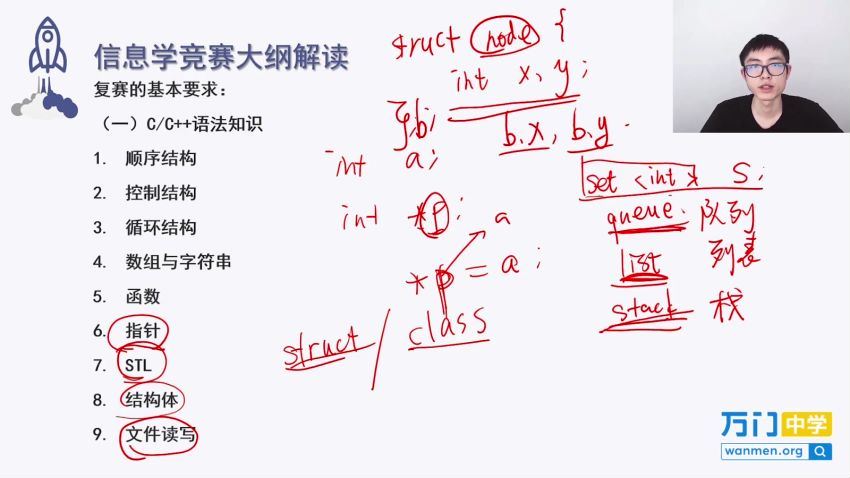 信息学竞赛大纲解读
复赛的基本要求：
（一）C/C++语法知识
1. 顺序结构
2. 控制结构
3. 循环结构
4. 数组与字符串
5. 函数
6. 指针
7. STL
8. 结构体
9. 文件读写
struct node {
int x, y;
}b;
b.x, b.y
int a;
int *p;
a
*p = a;
struct / class
set <int> S;
queue. 队列
list 列表
stack 栈
万门中学
wanmen.org